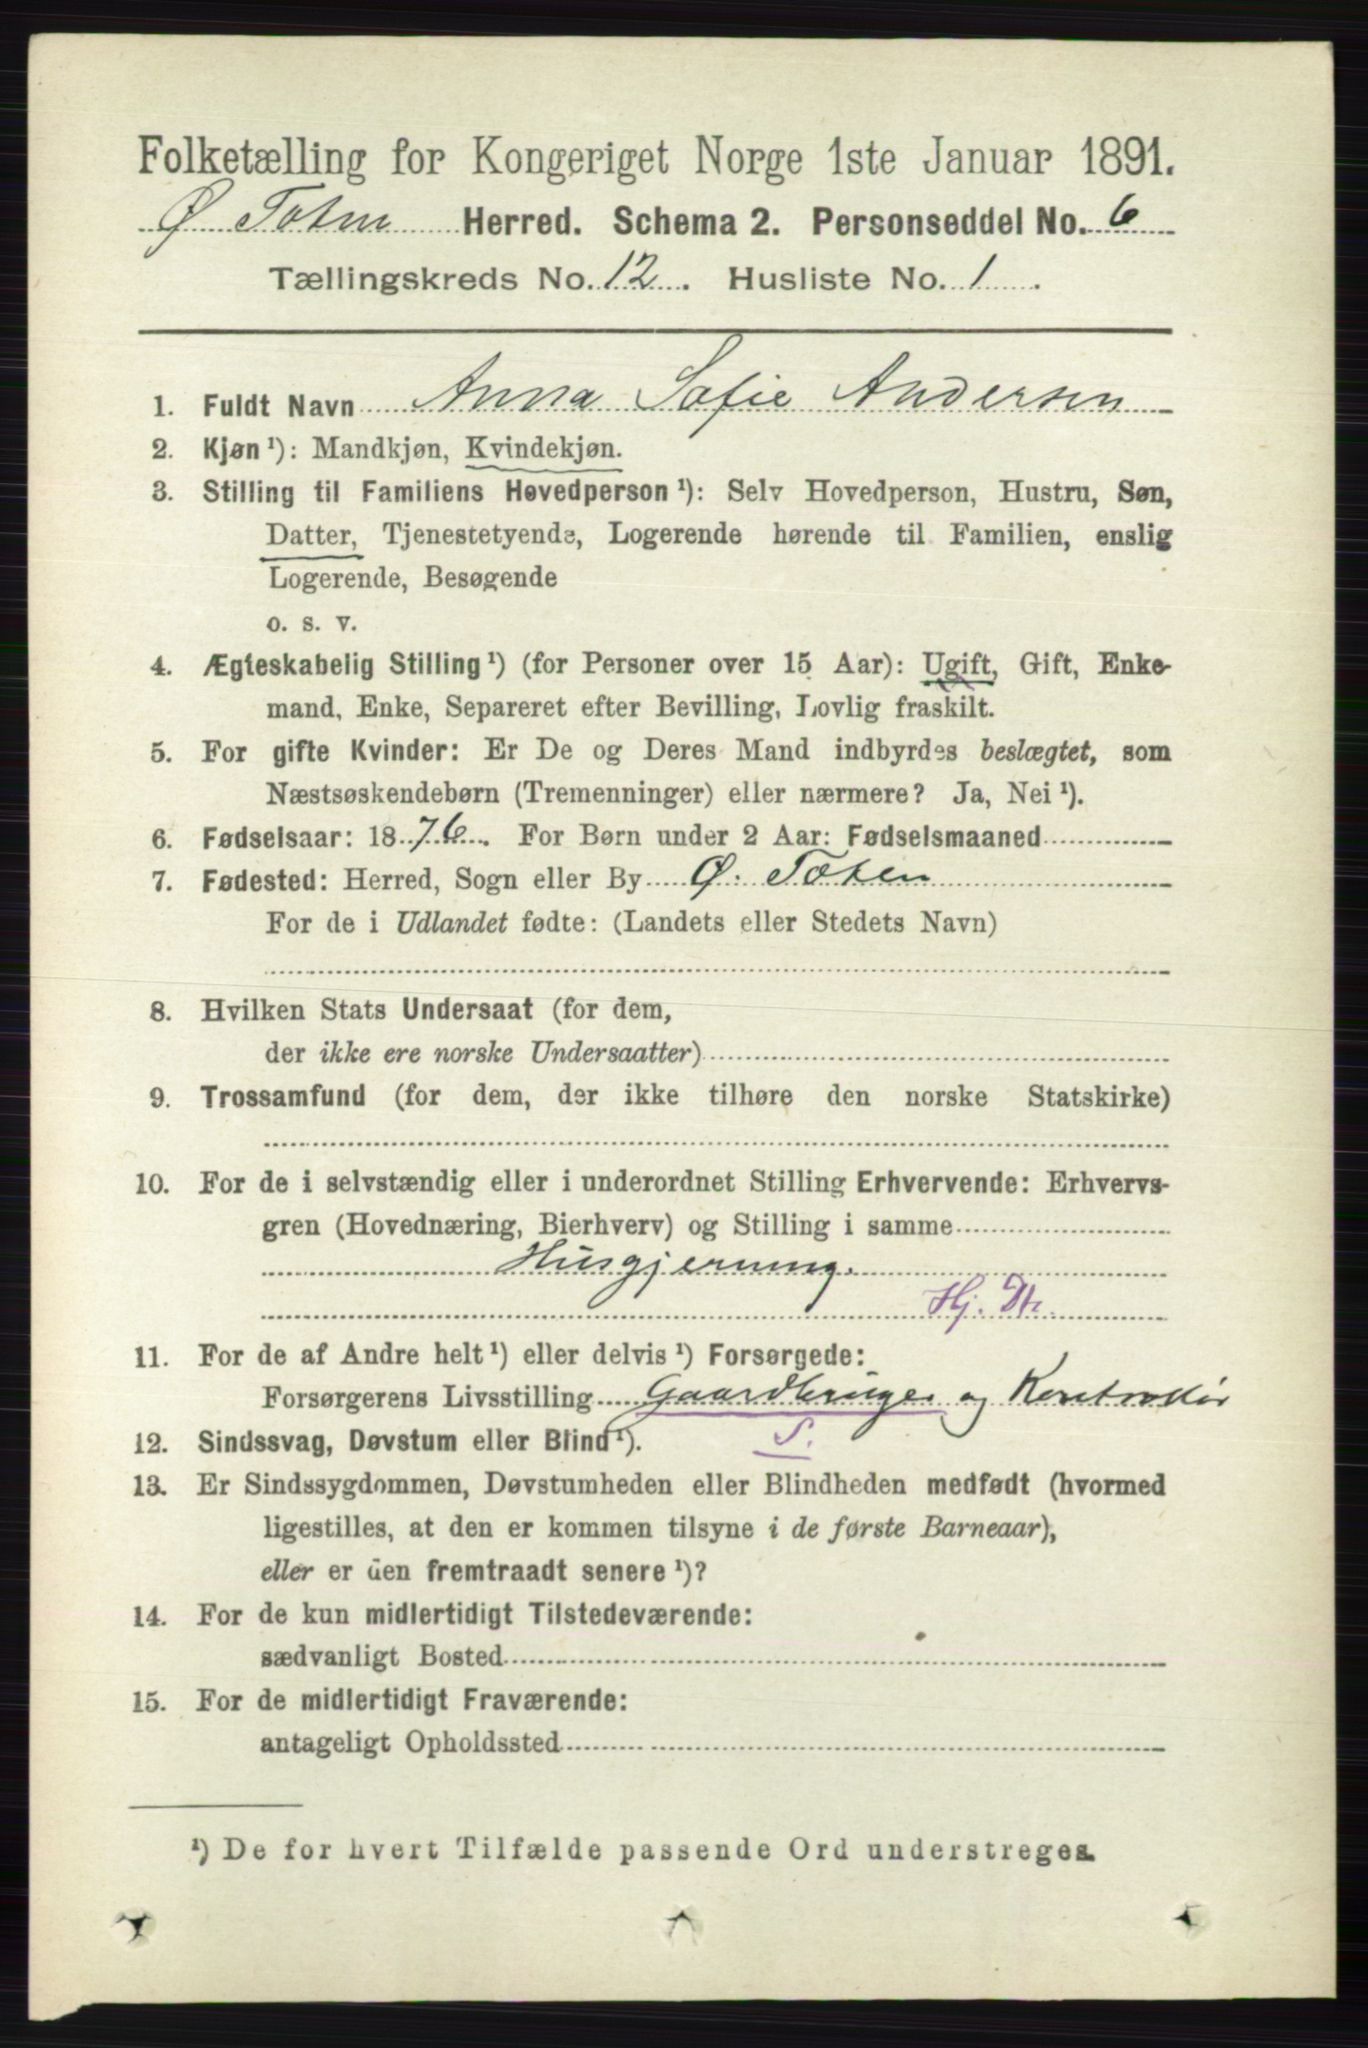 Folketælling for Kongeriget Norge 1ste Januar 1891.
Ø. Toten Herred. Schema 2. Personseddel No. 6
Tællingskreds No. 12. Husliste No. 1.
1. Fuldt Navn Anna Sofie Andersen
2. Kjøn ¹): Mandkjøn, Kvindekjøn.
3. Stilling til Familiens Hovedperson ¹): Selv Hovedperson, Hustru, Søn,
Datter, Tjenestetyende, Logerende hørende til Familien, enslig
Logerende, Besøgende
o. s. v.
4. Ægteskabelig Stilling ¹) (for Personer over 15 Aar): Ugift, Gift, Enke-
mand, Enke, Separeret efter Bevilling, Lovlig fraskilt.
5. For gifte Kvinder: Er De og Deres Mand indbyrdes beslægtet, som
Næstsøskendebørn (Tremenninger) eller nærmere? Ja, Nei ¹).
6. Fødselsaar: 1876. For Børn under 2 Aar: Fødselsmaaned
7. Fødested: Herred, Sogn eller By Ø. Toten
For de i Udlandet fødte: (Landets eller Stedets Navn)
8. Hvilken Stats Undersaat (for dem,
der ikke ere norske Undersaatter)
9. Trossamfund (for dem, der ikke tilhøre den norske Statskirke)
10. For de i selvstændig eller i underordnet Stilling Erhvervende: Erhvervs-
gren (Hovednæring, Bierhverv) og Stilling i samme
Husgjerning.
Hj. Dtr.
11. For de af Andre helt ¹) eller delvis ¹) Forsørgede:
Forsørgerens Livsstilling Gaardbruger og Kontrollør
12. Sindssvag, Døvstum eller Blind ¹). S.
13. Er Sindssygdommen, Døvstumheden eller Blindheden medfødt (hvormed
ligestilles, at den er kommen tilsyne i de første Barneaar),
eller er den fremtraadt senere ¹)?
14. For de kun midlertidigt Tilstedeværende:
sædvanligt Bosted
15. For de midlertidigt Fraværende:
antageligt Opholdssted
¹) De for hvert Tilfælde passende Ord understreges.